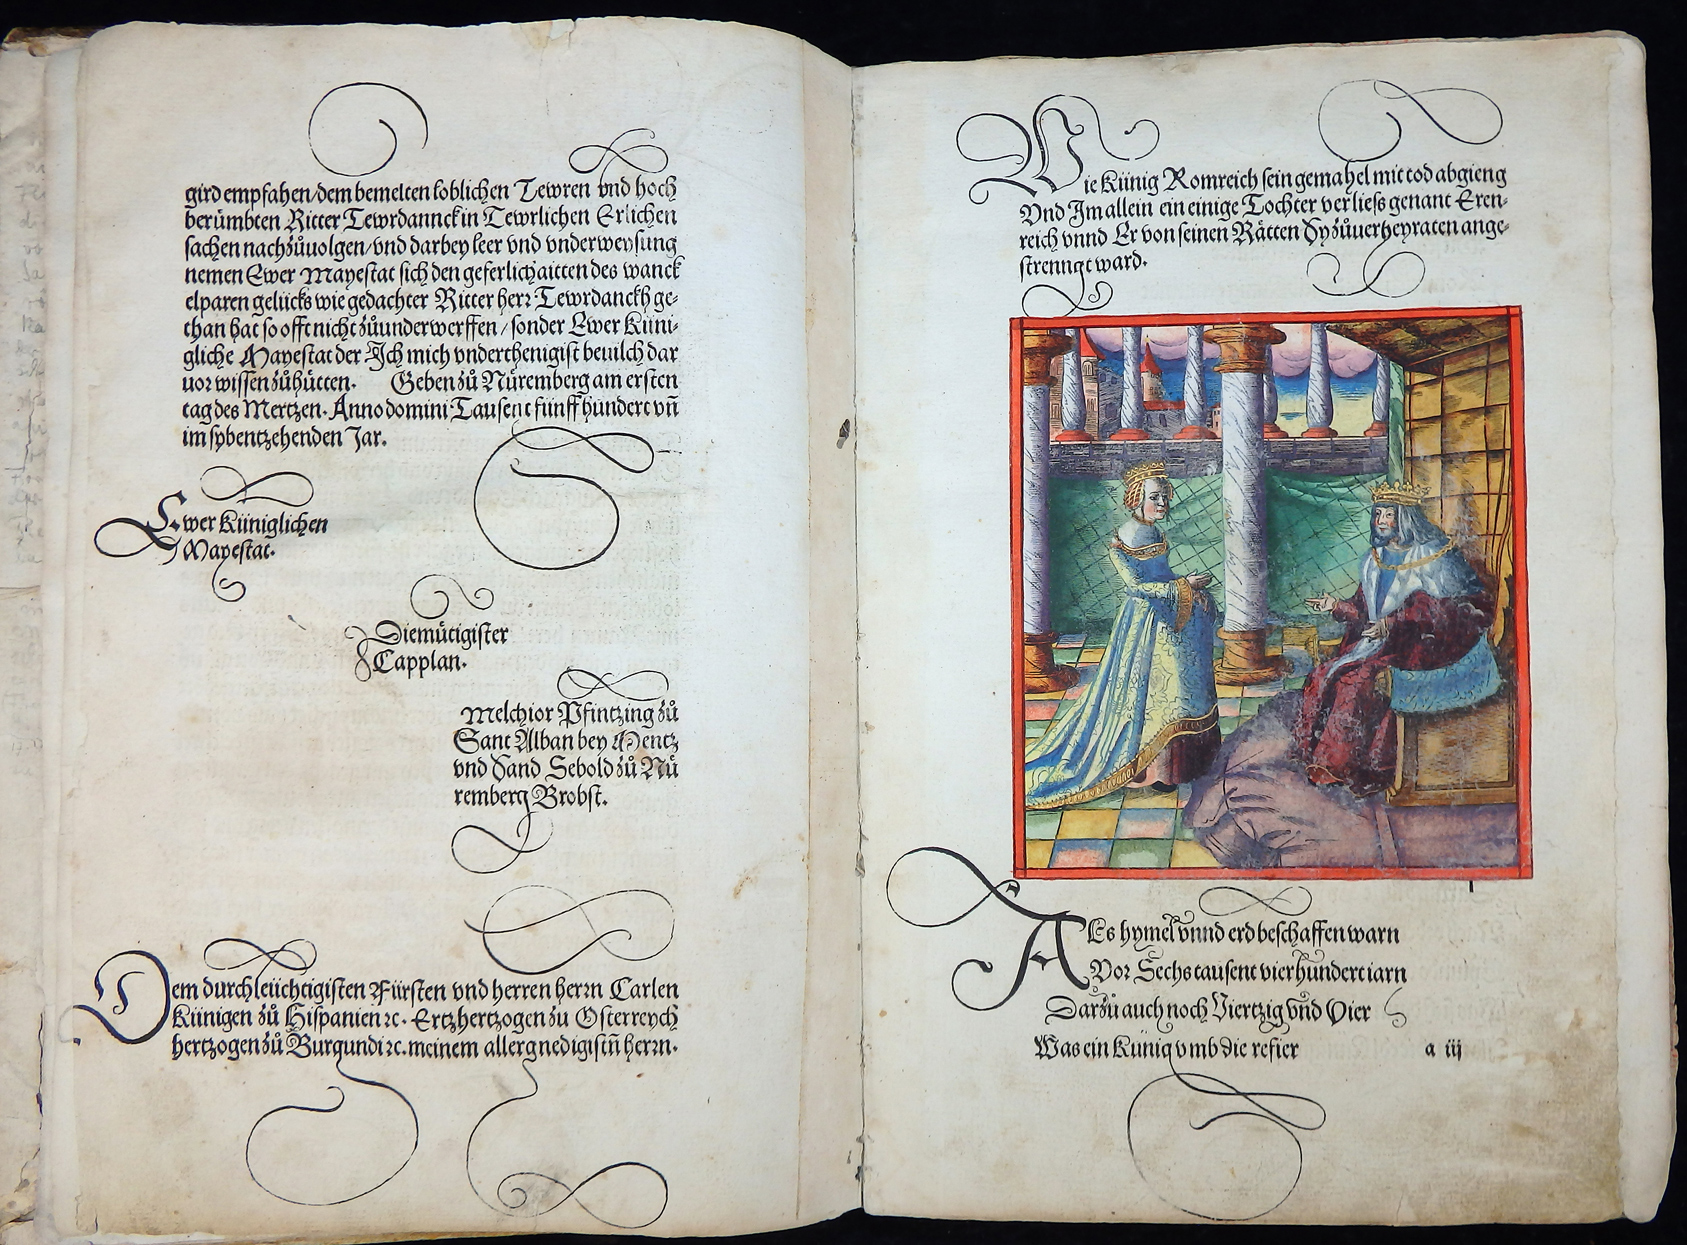 gird empfahen/dem bemelten loblichen Tewren vnd hoch
berümbten Ritter Tewrdannck in Tewrlichen Erlichen
sachen nachzůuolgen/vnd darbey leer vnd vnderweysung
nemen Ewer Mayestat sich den geferlichaitten des wanck
elparen gelücks wie gedachter Ritter herr Tewrdanckh ge-
than hat so offt nicht zůunderwerffen/sonder Ewer Küni-
gliche Mayestat der Ich mich vnderthenigist beuilch dar
uor wissen zůhütten. Geben zů Nüremberg am ersten
tag des Mertzen. Anno domini Tausent fünff hundert vñ
im sybentzehenden Jar.
Ewer Küniglichen
Mayestat.
Diemütigister
Capplan.
Melchior Pfintzing zů
Sant Alban bey Mentz
vnd Sand Sebold zů Nü
remberg Brobst.
Dem durchleüchtigisten Fürsten vnd herren herrn Carlen
Künigen zů Hispanien ꝛc. Ertzhertzogen zu Osterreych
hertzogen zů Burgundi ꝛc. meinem allergnedigistñ herrn.
Wie Künig Romreich sein gemahel mit tod abgieng
Vnd Jm allein ein einige Tochter verließ genant Eren-
reich vnnd Er von seinen Rätten Dy zůuerheyraten ange-
strenngt ward.
ALs hymel vnnd erd beschaffen warn
Vor Sechstausent vierhundert iarn
Darzů auch noch Viertzig vnd Vier
Was ein Künig vmb die refier
a iij